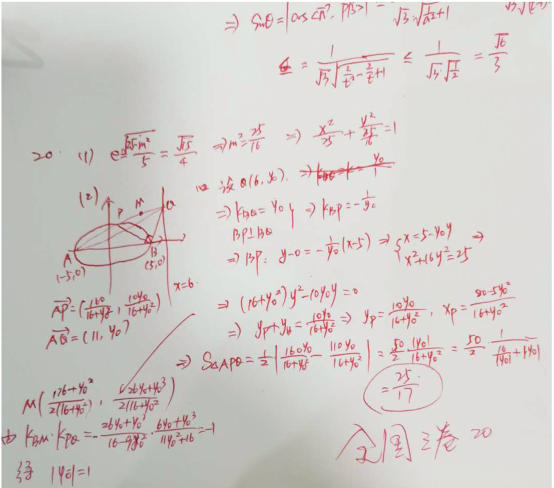 ⇒ sinθ = |cos<n, PB>| =
= 1/(√3·√(2/t² - 2/t + 1)) ≤ 1/(√3·√(1/2)) = √6/3
20. (1) e = √(25-m²)/5 = √15/4 ⇒ m² = 25/16 ⇒ x²/25 + y²/(25/16) = 1
(2)
设 Q(6, y₀). ⇒
⇒ k_BQ = y₀
BP⊥BQ
⇒ k_BP = -1/y₀
⇒ BP: y-0 = -1/y₀ (x-5) ⇒ { x = 5-y₀y
x²+16y² = 25 ⇒
P
M
Q
A
(-5,0)
B
(5,0)
x=6
⇒ (16+y₀²)y² - 10y₀y = 0
⇒ y_P + y_B = 10y₀/(16+y₀²) ⇒ y_P = 10y₀/(16+y₀²), x_P = (80-5y₀²)/(16+y₀²)
AP = (160/(16+y₀²), 10y₀/(16+y₀²))
AQ = (11, y₀)
⇒ S△APQ = 1/2 |160y₀/(16+y₀²) - 110y₀/(16+y₀²)| = 50/2 · |y₀|/(16+y₀²) = 50/2 · 1/(16/|y₀| + |y₀|)
= 25/17
M( (176+y₀²)/(2(16+y₀²)), (26y₀+y₀³)/(2(16+y₀²)) )
由 k_BM·k_PQ = -(26y₀+y₀³)/(16-9y₀²) · (6y₀+y₀³)/(11y₀²+16) = -1
得 |y₀| = 1
全国卷 20